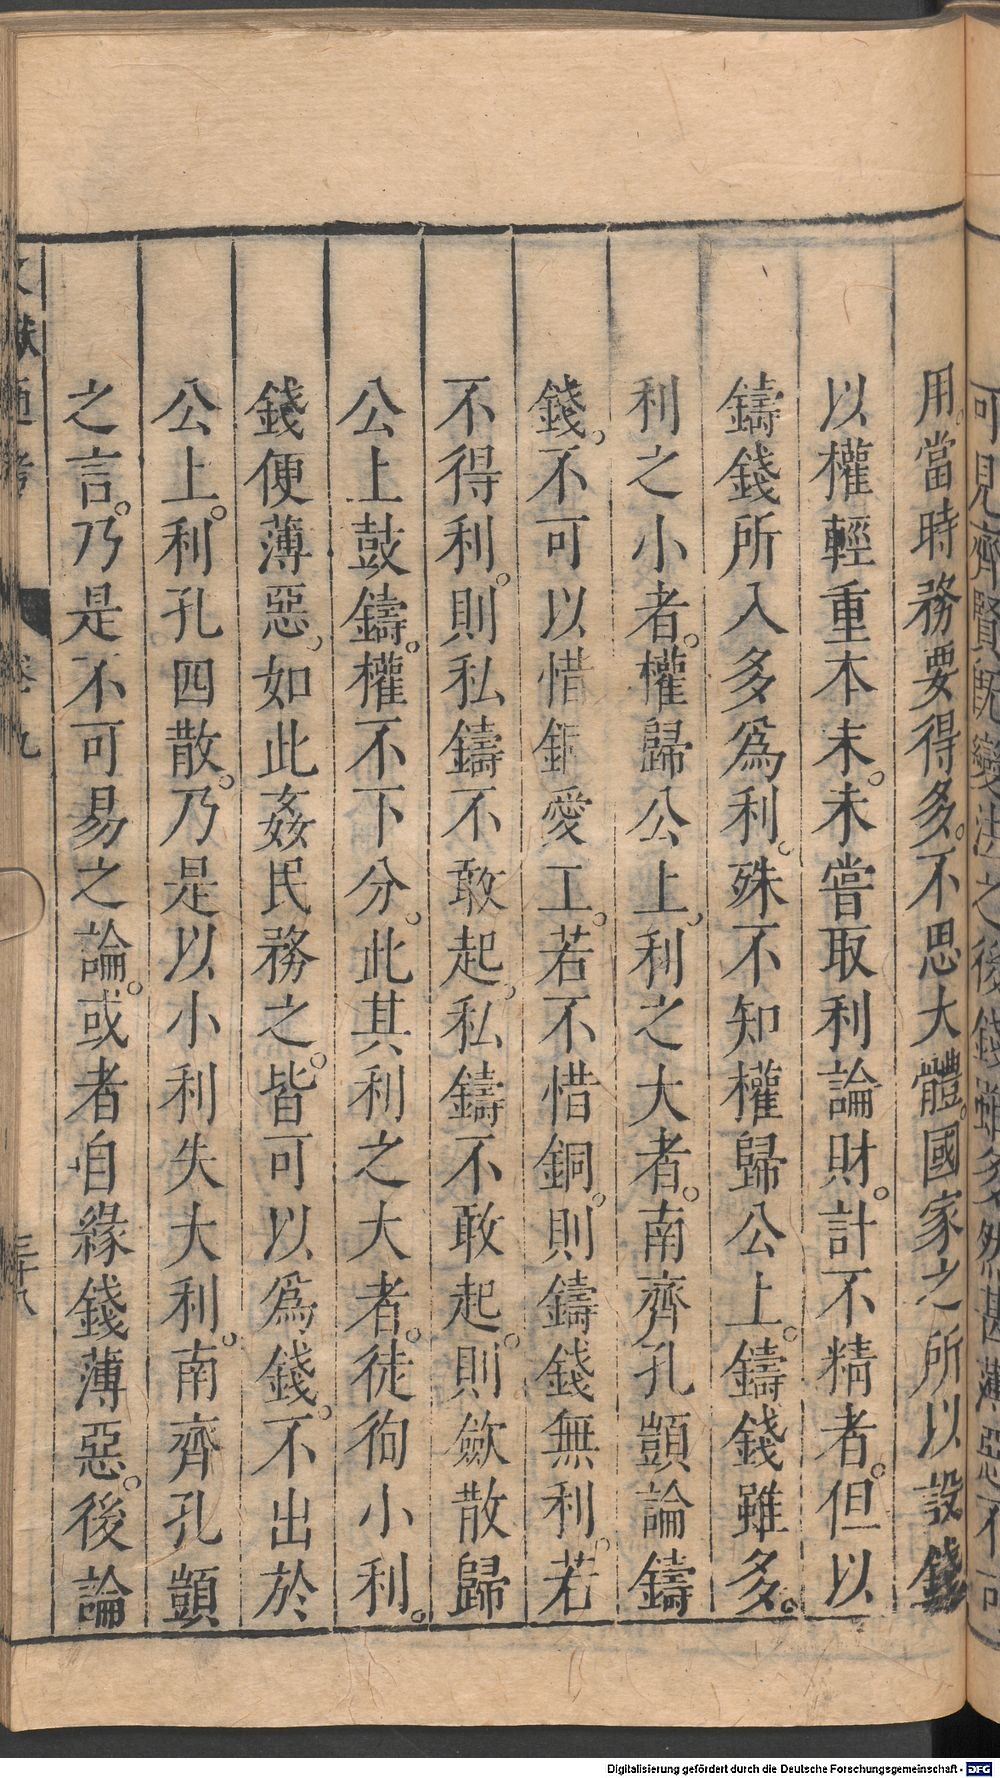 可見齊賢既變法之後錢雖多然甚薄惡不可
用。當時務要得多。不思大體。國家之所以設錢
以權輕重本末。未嘗取利論財。計不精者。但以
鑄錢所入多爲利。殊不知權歸公上。鑄錢雖多。
利之小者。權歸公上、利之大者。南齊孔顗論鑄
錢。不可以惜銅愛工。若不惜銅。則鑄錢無利。若
不得利。則私鑄不敢起、私鑄不敢起。則斂散歸
公上鼓鑄。權不下分。此其利之大者。徒徇小利。
錢便薄惡、如此姦民務之。皆可以爲錢。不出於
公上。利孔四散。乃是以小利失大利。南齊孔顗
之言。乃是不可易之論。或者自緣錢薄惡。後論
文獻通考 卷九 三十八
Digitalisierung gefördert durch die Deutsche Forschungsgemeinschaft - DFG